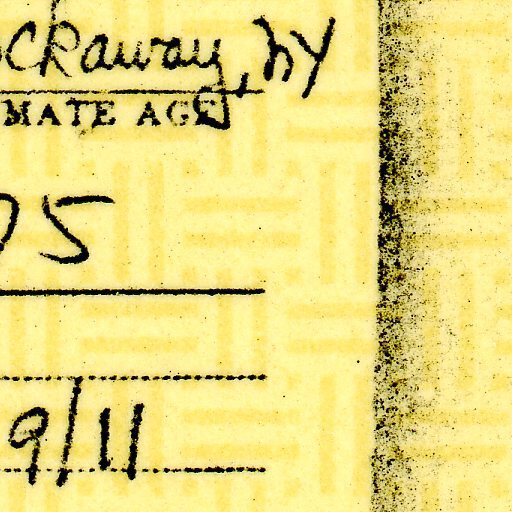 ockaway, NY
MATE AGE
75
9/11